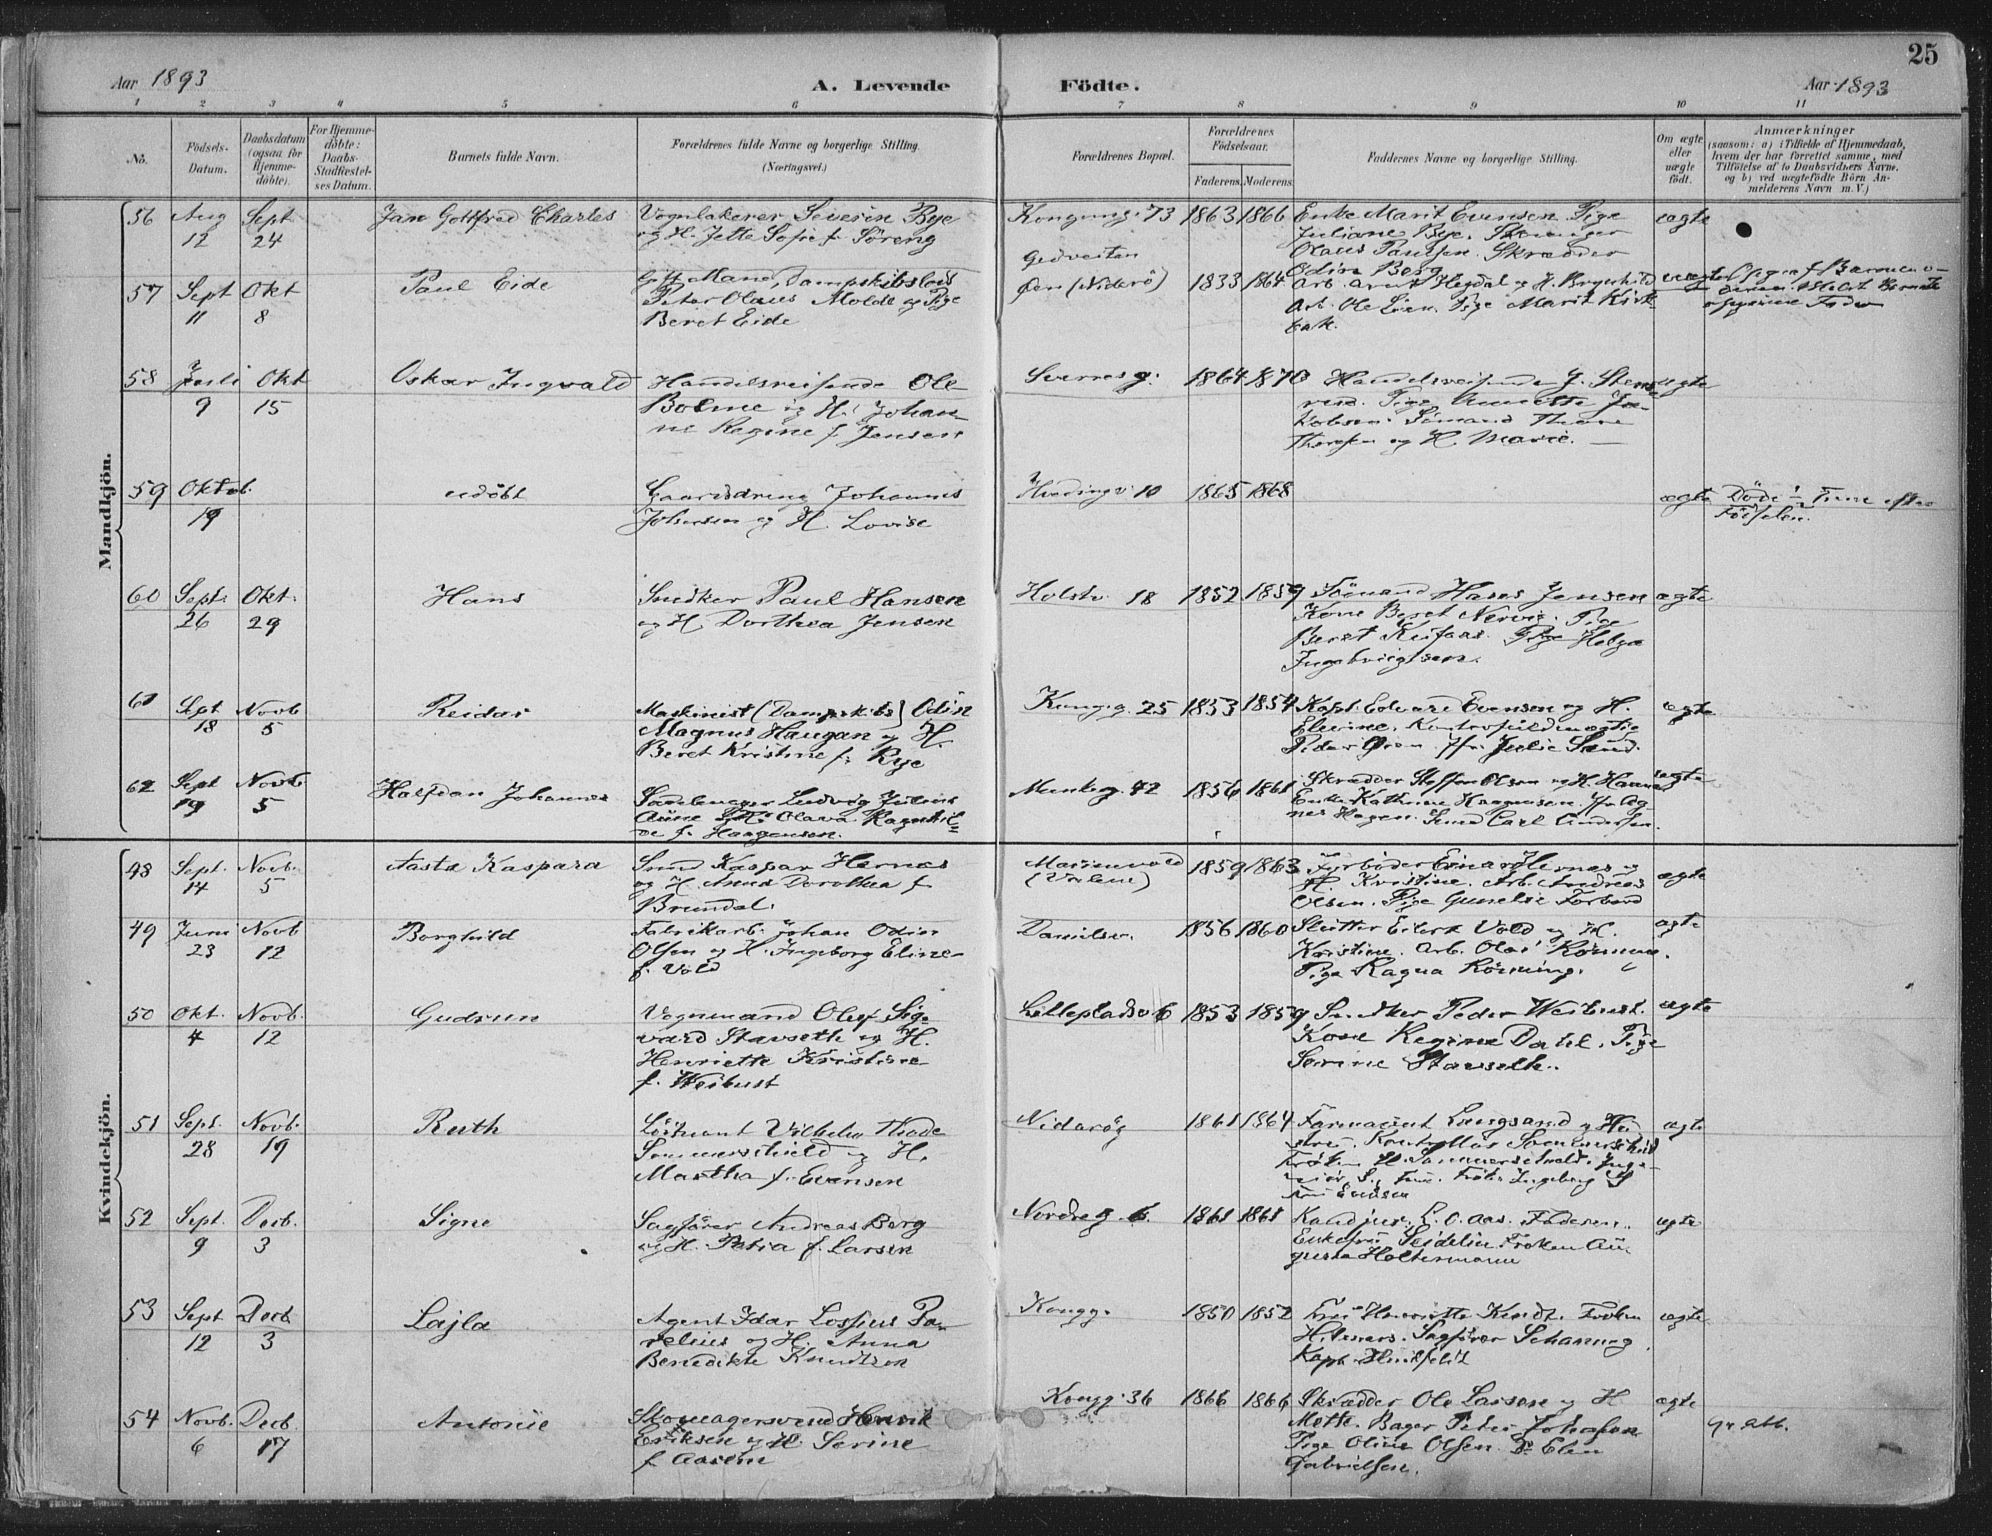 25
Aar 1893
A. Levende Födte.
Aar 1893
1 2 3 4 5 6 7 8 9 10 11
No.
Födsels-
Datum.
Daabsdatum
(ogsaa for
Hjemme-
døbte).
For Hjemme-
døbte:
Daabs-
Stadfæstel-
ses Datum.
Barnets fulde Navn.
Forældrenes fulde Navne og borgerlige Stilling.
(Næringsvei.)
Forældrenes Bopæl.
Forældrenes
Födselsaar.
Faderens. Moderens.
Faddernes Navne og borgerlige Stilling.
Om ægte
eller
uægte
født.
Anmærkninger
(saasom: a) i Tilfælde af Hjemmedaab,
hvem der har forrettet samme, med
Tilföielse af to Daabsvidners Navne.
og b) ved uægtefödte Börn An-
melderens Navn m. V.)
Mandkjön.
56 Aug 12 Sept 24
Jan Gottfred Charles
Vognlakerer Severin Rye
og H. Jette Sofie f. Söreng
Kongensg. 73 1863 1866
Enke Marit Evensen Pige
Juliane Rye.
Olaus Paulsen. Skrædder
Odin Berg
ægte
57 Sept 11 Okt 8
Paul Eide
Gift Mand, Dampskibslods
Peter Olaus Molde og Pige
Beret Eide
Øen (Niderö) 1833 1864
Arb. Arnt Hegdal og H. Borghild
Arb. Ole Lien. Pige Marit Kirk-
bak.
uægte
58 Juli 9 Okt 15
Oskar Ingvald
Handelsreisende Ole
Bolme og H. Johan-
ne Regine f. Jensen
Sverresg. 1864 1870
Handelsreisende J. Stens-
Pige Annette Ja-
kobsen. Sömand Thore
Thoresen og H. Marie.
ægte
59 Oktob. 19
udöbt
Gaarddreng Johannes
Johnsen og H. Lovise
Hvedingsv. 10 1865 1868
ægte
Döde ½ Time efter
Födselen.
60 Sept. 26 Okt. 29
Hans
Snedker Paul Hansen
og H. Dorthea Jensen
Holstv. 18 1852 1859
Sömand Hans Jensen
Kone Beret Nervig. Pige
Beret Pige Helga
Ingebrigtsen.
ægte
61 Sept 18 Novb 5
Reidar
Maskinist (Dampskibs) Odin
Magnus Haugan og H.
Beret Kristine f. Rye
Kongsg. 25 1853 1854
Kapt. Edvard Evensen og H.
Elevine. Kontorfuldmægtig
Peder Øren. Jfr. Julie Sand.
ægte
62 Sept 19 Novb. 5
Halfdan Johannes
Sadelmager Ludvig Julius
Aüne og H. Olava Ragnhil-
de f. Haagensen.
Munkeg. 42 1856 1861
Skrædder Steffen Olsen og H. Hanna
Enke Kathrine Haagensen. Jfr. Ag-
nes Hagen. Smed Carl Andersen.
ægte
Kvindekjön.
48 Sept. 14 Novb. 5
Aasta Kaspara
Smed Kaspar Hernes
og H. Anna Dorothea f.
Brundal.
Marienvold
1859 1863
Fyrböder Einar Hernes og
H. Kristine. Arb. Andreas
Olsen. Pige Gunelie Forbord
ægte
49 Juni 23 Novb 12
Borghild
Fabrikarb. Johan Odin
Olsen og H. Ingeborg Eline
f. Vold
Danielsv. 1856 1860
Slutter Eilert Vold og H.
Kristine. Arb. Olaf Körning.
Pige Ragna Körning.
ægte
50 Okt. 4 Novb. 12
Gudrun
Vognmand Oluf Sig-
vard Stavseth og H.
Henriette Kristine
f. Weibust
Lilleplads 6 1853 1859
Snedker Peder Weibust.
Kone Regine Dahl. Pige
Serine Stavseth.
ægte
51 Sept. 28 Novb. 19
Ruth
Löitnant Vilhelm Thode
Sommerschield og H.
Martha f. Evensen
Nidarög 1861 1864
Farmaceut Lungsand og Hu-
stru
ægte
52 Sept. 9 Decb. 3
Signe
Sagförer Andreas Berg
og H. Petra f. Larsen
Nordreg. 6. 1861 1861
Kand. jur. L. O. Aas. Faderen.
Enkefru Seidelin. Fröken Au-
gusta Holtermann
ægte
53 Sept 12 Decb 3
Lajla
Agent Idar Lossius Pa-
relius og H. Anna
Benedikte Knudtzon
Kongg. 1850 1852
Fru Henriette Kindt. Fröken
Sagförer Schanning
Kapt. Huitfeldt
ægte
54 Novb. 6 Decb. 17
Antonie
Skomagersvend Henrik
Eriksen og H. Serine
f. Aasen
Kongg. 36 1866 1866
Skrædder Ole Larsen og H
Mette. Bager Peter Johansen
Pige Oline Olsen. Do Elen
Gabrielsen.
ægte